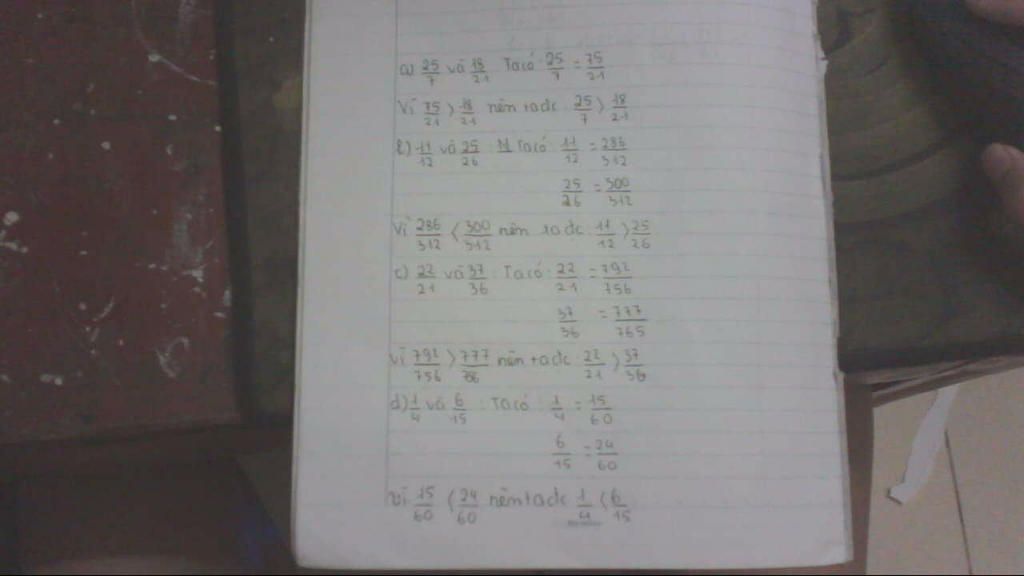 a) 25/7 và 18/21 Ta có : 25/7 = 75/21
Vì 75/21 > 18/21 nên ta dc : 25/7 > 18/21
b) 11/12 và 25/26 : Ta có : 11/12 = 286/312
25/26 = 300/312
Vì 286/312 < 300/312 nên ta dc : 11/12 > 25/26
c) 22/21 và 37/36 : Ta có : 22/21 = 792/756
37/36 = 777/765
Vì 792/756 > 777/756 nên ta dc : 22/21 > 37/36
d) 1/4 và 6/15 : Ta có : 1/4 = 15/60
6/15 = 24/60
Vì 15/60 < 24/60 nên ta dc 1/4 < 6/15